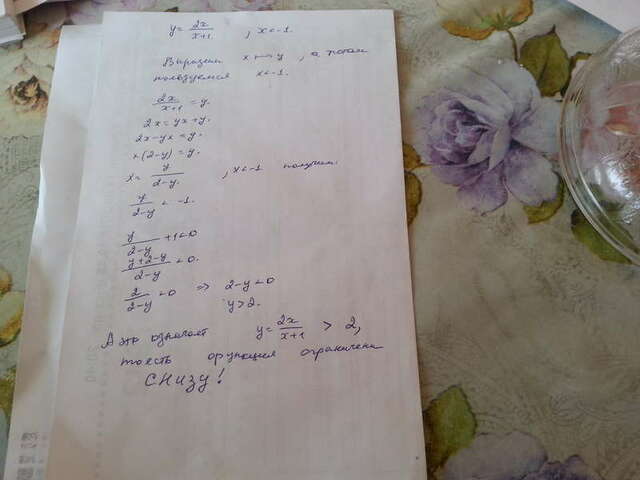 y = 2x/x+1 , x<-1.
Выразим x ↦ y , а потом
пользуемся x<-1.
2x/x+1 = y.
2x = yx + y.
2x - yx = y.
x(2-y) = y.
x = y/2-y. , x<-1 получим:
y/2-y < -1.
y/2-y + 1 < 0
y+2-y/2-y < 0.
2/2-y < 0 => 2-y < 0
y > 2.
А это означает y = 2x/x+1 > 2,
то есть функция ограничена
СНИЗУ!